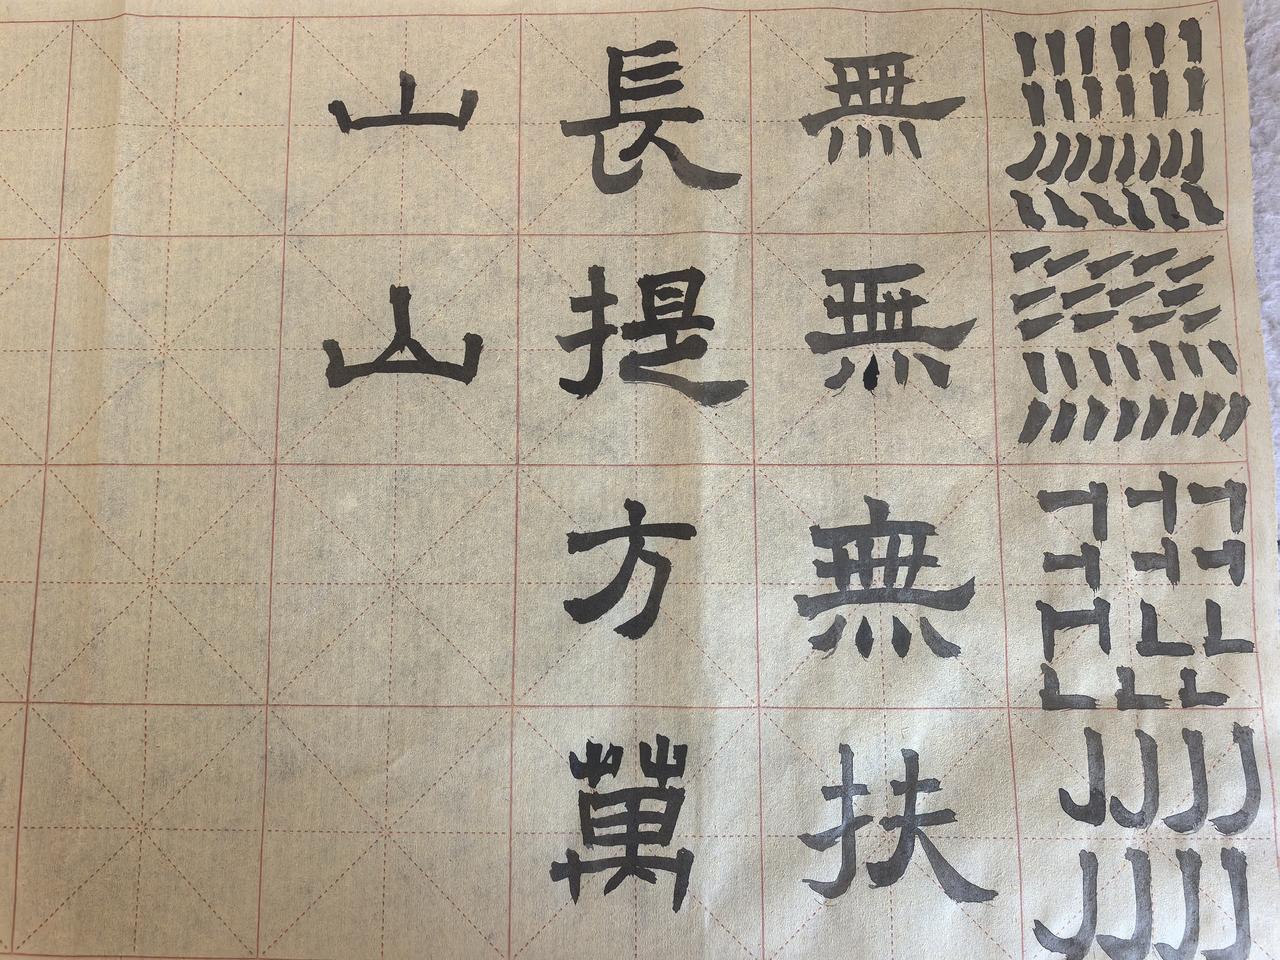 無無無扶
長提方萬
山山